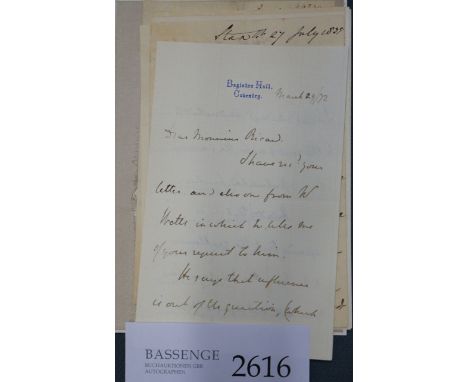 Stanth 27 July 1835
Baginton Hall,
Coventry.
March 29/72
Dear Monsieur Ricard.
I have recd your
letter and also one from W
Watts in which he tells me
of your request to him.
He says that influence
is out of the question, (which
BASSENGE
BUCHAUKTIONEN GBR
AUTOGRAPHEN
2616